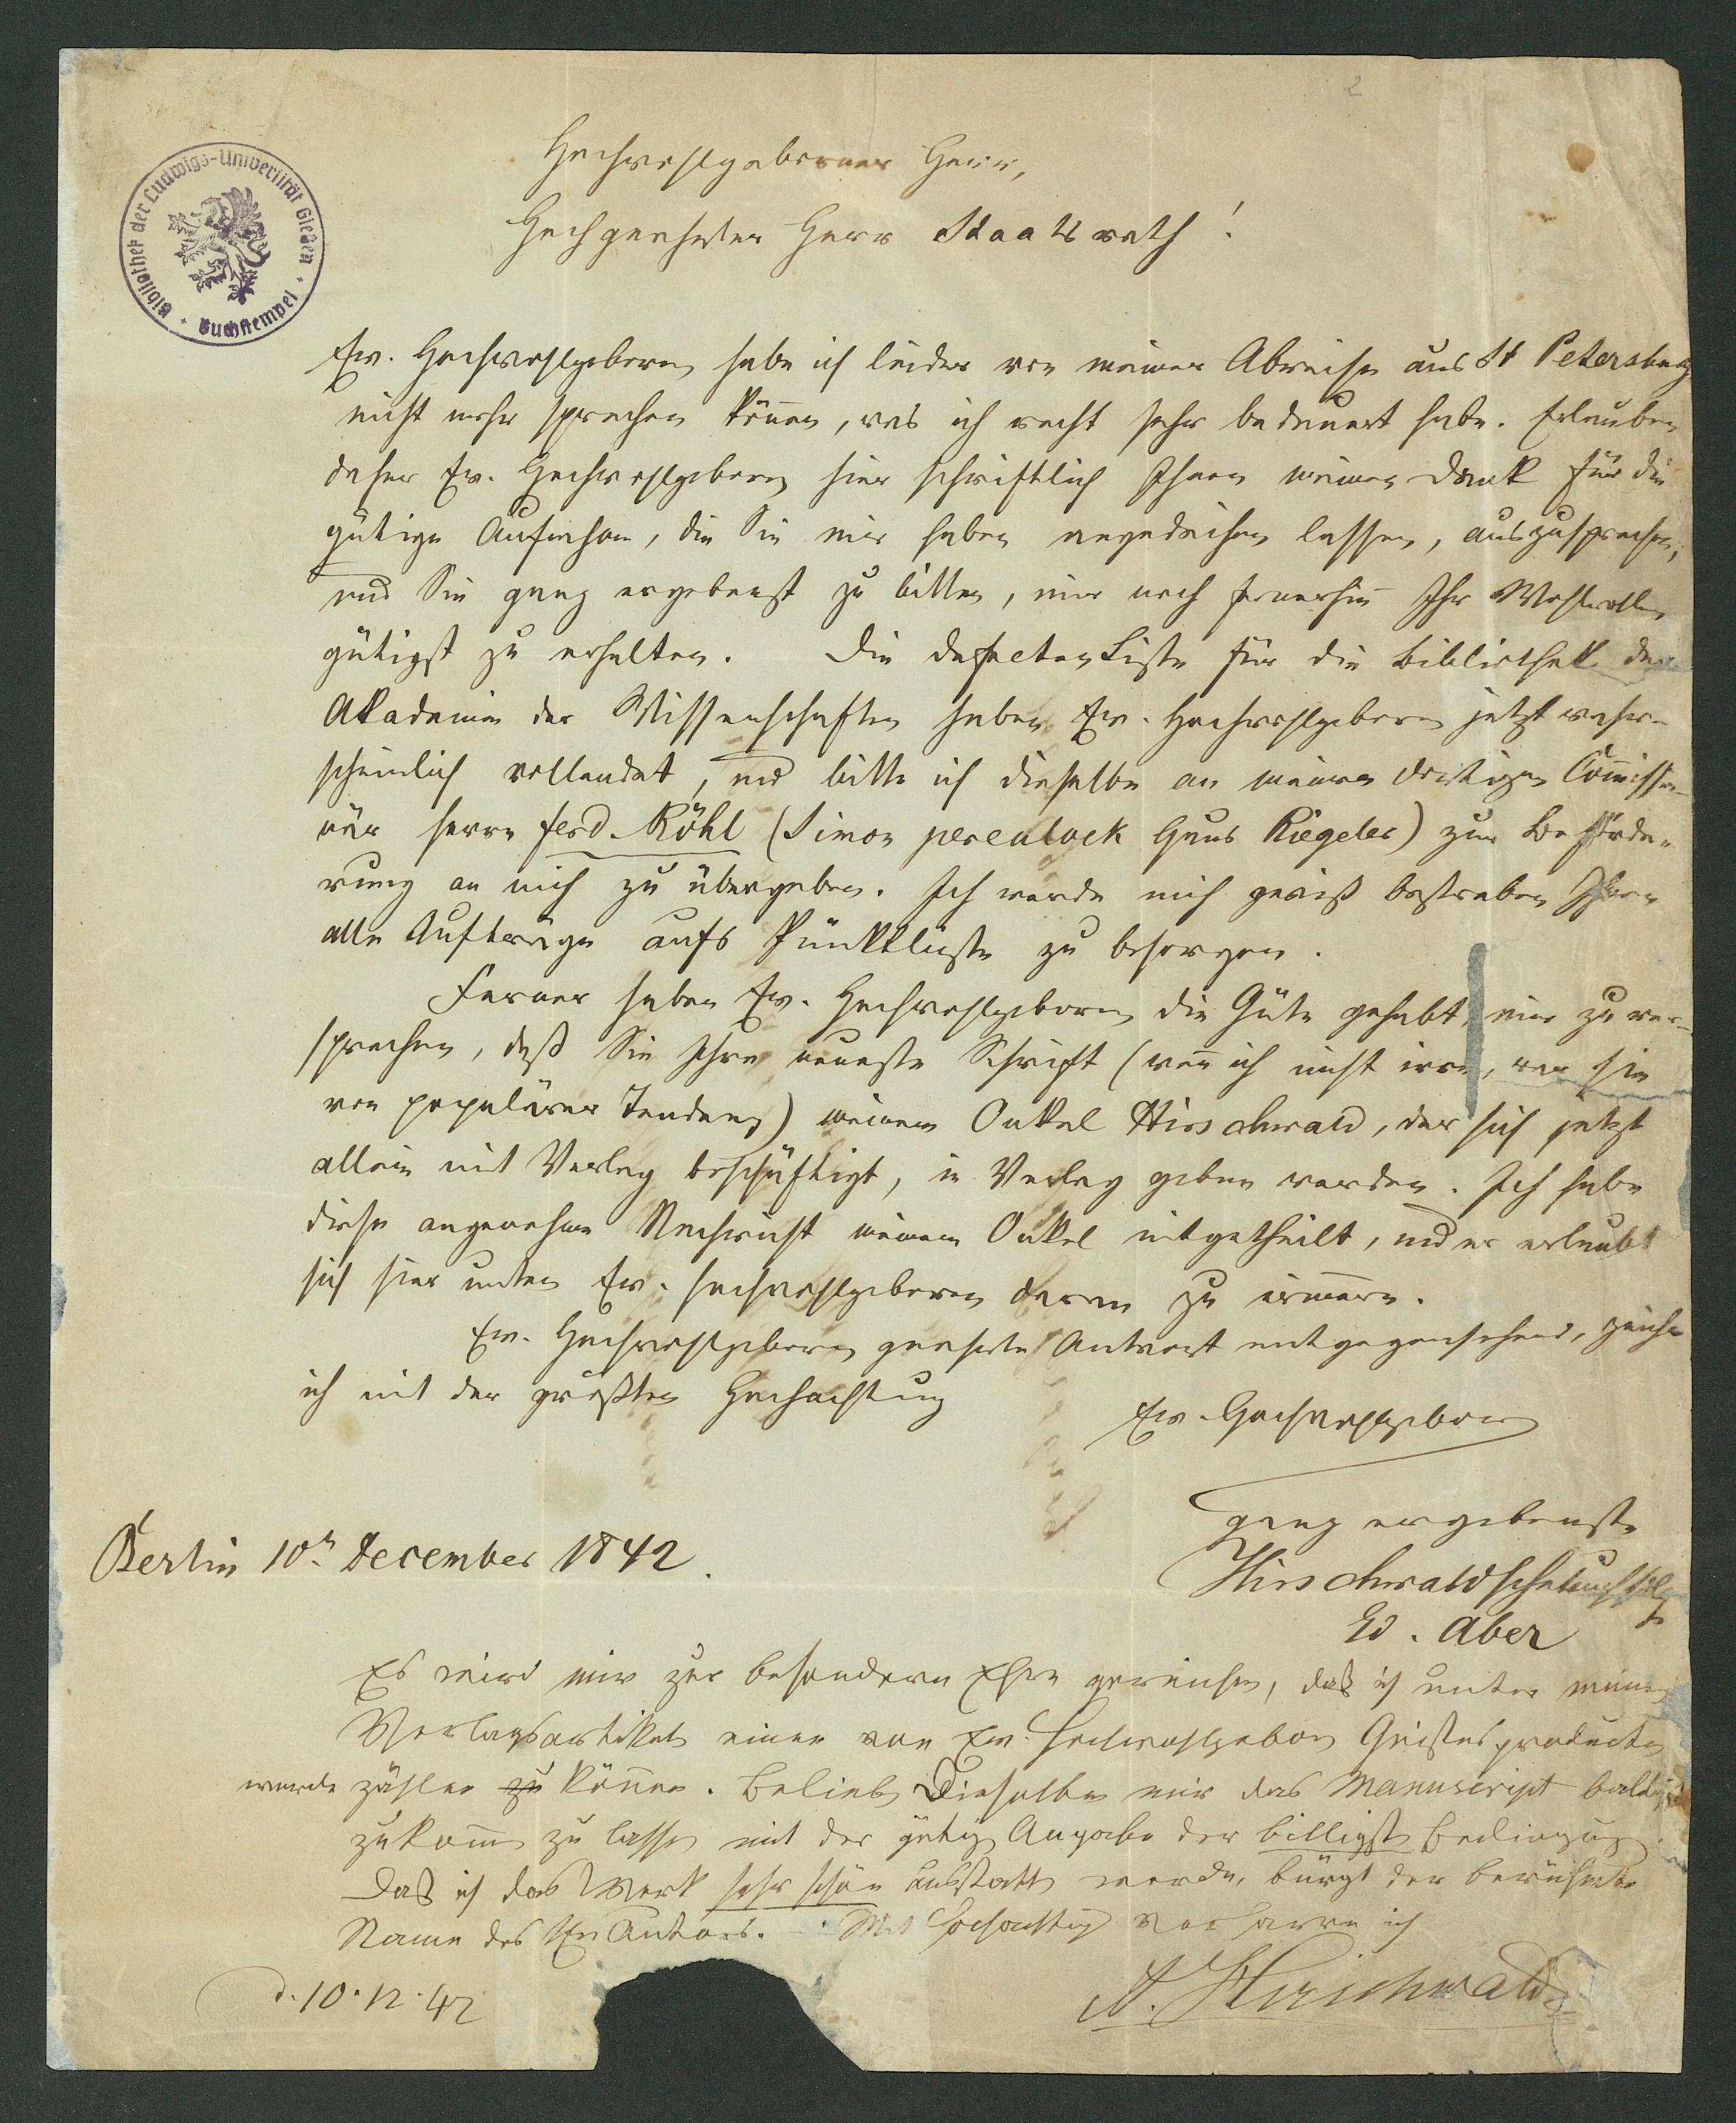 2
Bibliothek der Ludwigs-Universität Gießen · Buchstempel ·
Hochwohlgeborner Herr,
Hochgeehrter Herr Staatsrath!
Ew. Hochwohlgeboren habe ich leider vor meiner Abreise aus St Petersburg
nicht mehr sprechen können, was ich recht sehr bedauert habe. Erlauben
daher Ew. Hochwohlgeboren hier schriftlich Ihnen meinen Dank für die
gütige Aufnahme, die Sie mir haben angedeihen lassen, auszusprechen,
und Sie ganz ergebenst zu bitten, mir noch fernerhin Ihr Wohlwollen
gütigst zu erhalten. Die Defecten Liste für die Bibliothek der
Akademie der Wissenschaften haben Ew. Hochwohlgeboren jetzt wahr-
scheinlich vollendet, und bitte ich dieselbe an meinen dortigen Commissio-
när Herrn Ferd. Röhl (Simon pereulock Haus Riegeler) zur Beförde-
rung an mich zu übergeben. Ich werde mich gewiß bestreben Ihnen
alle Aufträge aufs Pünktlichste zu besorgen.
Ferner haben Ew. Hochwohlgeboren die Güte gehabt, mir zu ver-
sprechen, daß Sie Ihre neueste Schrift (wenn ich nicht irre, war sie
von populärer Tendenz) meinem Onkel Hirschwald, der sich jetzt
allein mit Verlag beschäftigt, in Verlag geben werden. Ich habe
diese angenehme Nachricht meinem Onkel mitgetheilt, und er erlaubt
sich hier unten Ew. Hochwohlgeboren daran zu erinnern.
Ew. Hochwohlgeboren geehrte Antwort entgegensehend, zeichne
ich mit der größten Hochachtung
Ew. Hochwohlgeboren
ganz ergebenste
Berlin 10n December 1842.
Hirschwaldsche Buchhdlg
Ed. Aber
Es wird mir zur besondern Ehre gereichen, daß ich unter meinen
Verlagsartikeln einen von Ew. Hochwohlgeboren Geistesproducten
werde zählen zu können. Belieben Dieselben mir das Manuscript baldigst
zukommen zu lassen mit der gütigen Angabe der billigsten Bedingung.
Daß ich das Werk sehr schön ausstatten werde, bürgt der berühmte
Name des Autors. Mit Hochachtung verharre ich
A. Hirschwald
d. 10.12.42